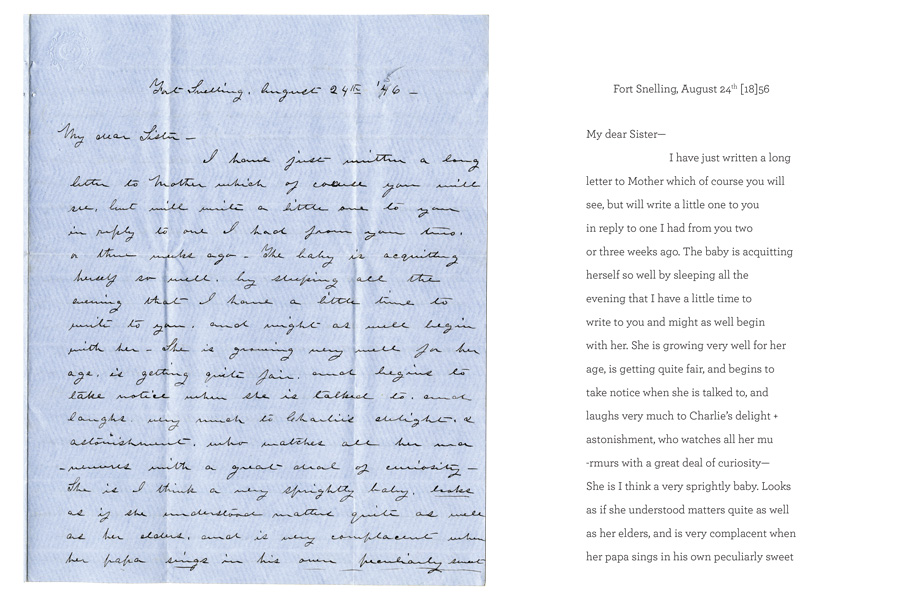 Fort Snelling, August 24th '56 —
My dear Sister —
I have just written a long
letter to Mother which of course you will
see, but will write a little one to you
in reply to one I had from you two,
or three weeks ago — The baby is acquitting
herself so well, by sleeping all the
evening that I have a little time to
write to you, and might as well begin
with her — She is growing very well for her
age, is getting quite fair, and begins to
take notice when she is talked to, and
laughs, very much to Charlie's delight, &
astonishment, who watches all her ma
-neuvres with a great deal of curiosity —
She is I think a very sprightly baby, looks
as if she understood matters quite as well
as her elders, and is very complacent when
her papa sings in his own peculiarly sweet
Fort Snelling, August 24th [18]56
My dear Sister—
I have just written a long
letter to Mother which of course you will
see, but will write a little one to you
in reply to one I had from you two
or three weeks ago. The baby is acquitting
herself so well by sleeping all the
evening that I have a little time to
write to you and might as well begin
with her. She is growing very well for her
age, is getting quite fair, and begins to
take notice when she is talked to, and
laughs very much to Charlie's delight +
astonishment, who watches all her mu
-rmurs with a great deal of curiosity—
She is I think a very sprightly baby. Looks
as if she understood matters quite as well
as her elders, and is very complacent when
her papa sings in his own peculiarly sweet